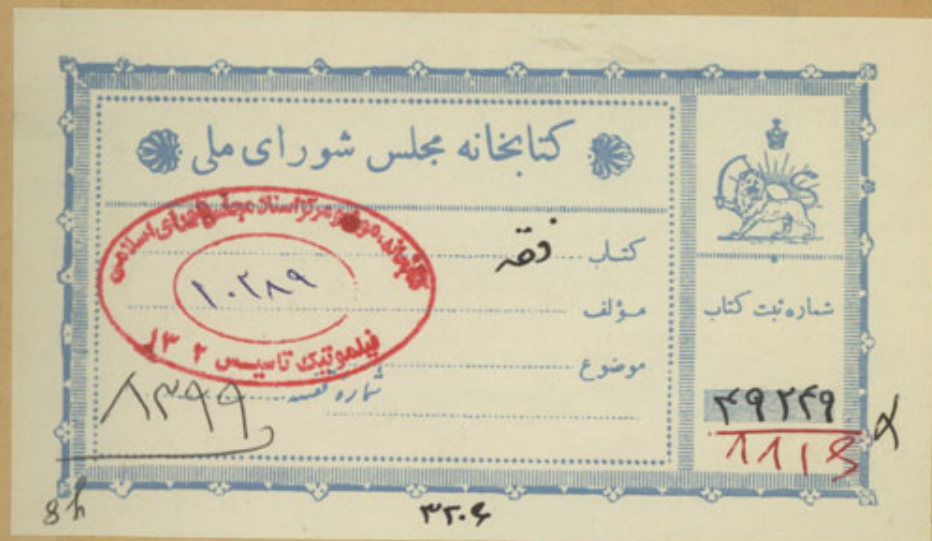 کتابخانه مجلس شورای ملی
کتاب فقه
مؤلف
موضوع
شماره قفسه ۸۳۹۹
شماره ثبت کتاب
۴۹۲۴۹
کتابخانه، موزه و مرکز اسناد مجلس شورای اسلامی
۱۰۲۸۹
فیلموتیک تاسیس ۱۳۰۲
۳۲۰۶